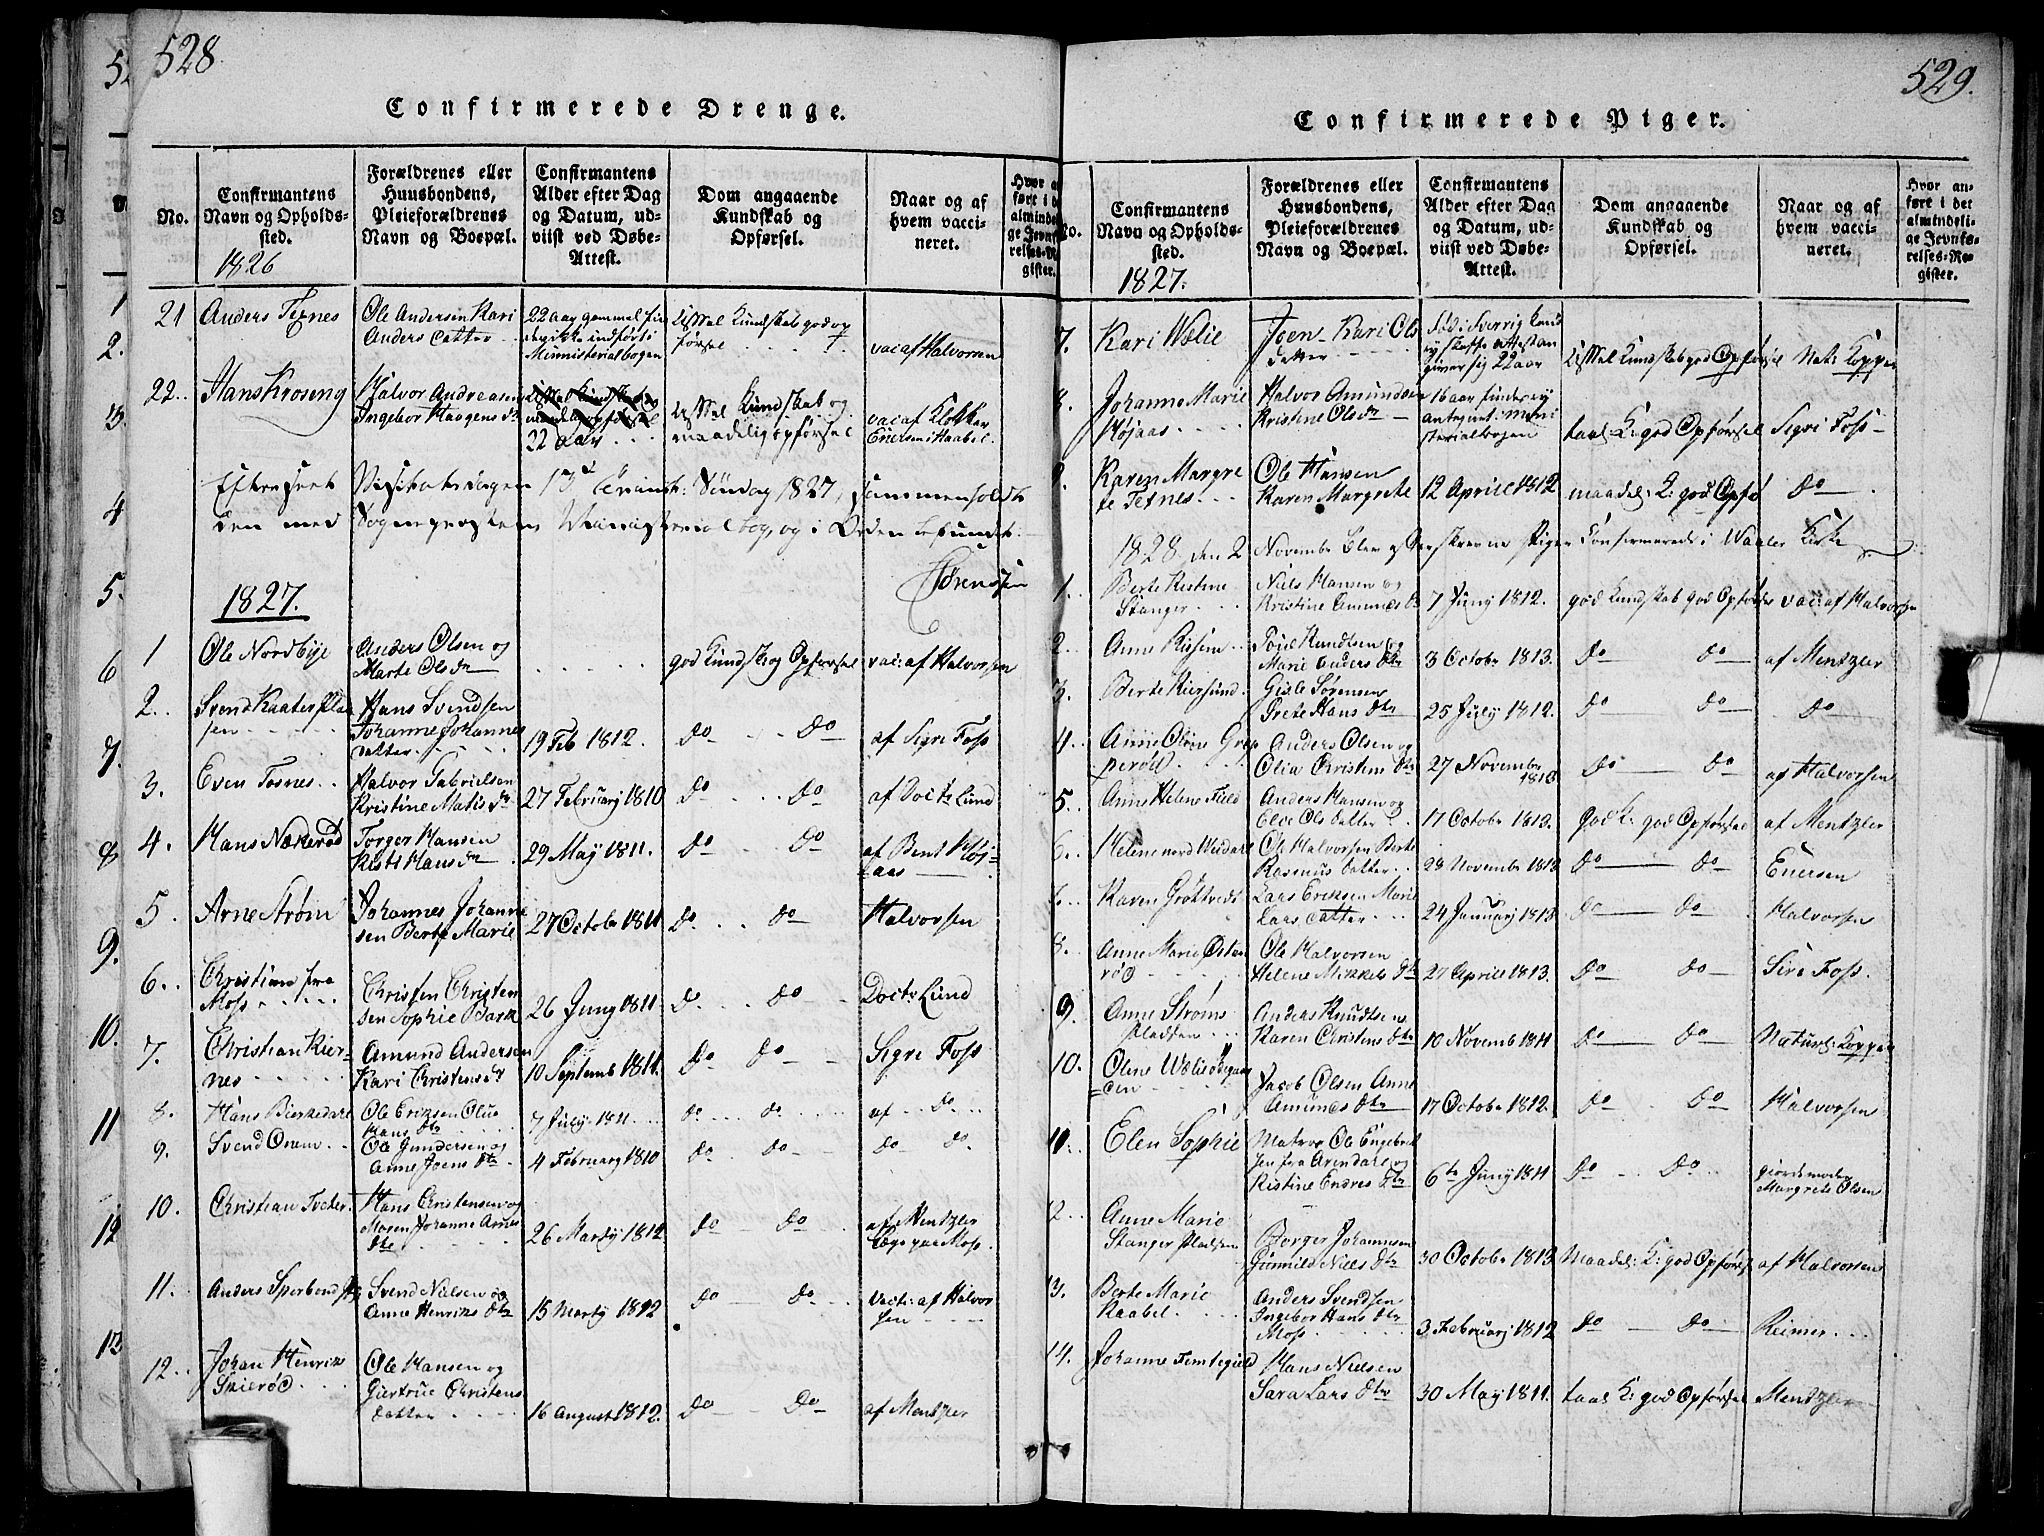 528
Confirmerede Drenge.
No.
Confirmantens Navn og Opholdssted.
Forældrenes eller Huusbondens, Pleieforældrenes Navn og Boepæl.
Confirmantens Alder efter Dag og Datum, udviist ved Døbe-Attest.
Dom angaaende Kundskab og Opførsel.
Naar og af hvem vaccineret.
1826
21 Anders Texnes
Ole Andersen Kari
Anders Datter
22 aar gammel
Ministerialbogen
Kundskab god op
førsel
vac af Halvorsen
22. Hans Kroseng
Halvor Andreasen
Ingebor Haagens Dr
22 Aar
Kundskab og
maadelig opførsel
vac af Klokker
Søndag 1827, sammenholdt
og i Orden befundet.
Sørensen
1827.
1 Ole Nordbye
Anders Olsen og
Marte Ols Dr
god Kundsk og Opførsel
vac: af Halvorsen
2.
Hans Svendsen
Johanne Johannes
datter
19 Feb 1812.
Do Do
af Sigri Foss
3. Even Tosnes
Halvor Gabrielsen
Kristine Matis Dr
27 Februarj 1810
Do Do
af Doct: Lund
4. Hans Nærerød
Torger Hansen
29 May 1811.
Do Do
af Bent Høj
aas
5. Arne Strøm
Johannes Johanne
sen Berte Marie
27 Octobr 1811
Do Do
Halvorsen
6. Christian fra
Moss
Christen Christen
sen Sophie Bark
26 Juny 1811
Do Do
Doctr Lund
7. Christian Kier-
nes
Amund Andersen
Kari Christens Dr
10 Septemb 1811.
Do Do
Sigri Foss
8. Hans Birkedal
Ole Eriksen Olia
Hans Dtr
7 July 1811
Do Do
af Do
9. Svend
Ole Gundersen og
Anne Joens Dtr
4 Februarj 1810
Do Do
Do Do
10. Christian
Hans Christensen og
Maren Johanne
Dtr
26 Martÿ 1812
Do Do
af Mentzler
Læge paa Moss.
11. Anders
Svend Nielsen og
Anne Henriks Dtr
15 Marty 1812
Do Do
vact: af Halvor
sen
12. Johan Henrik
Skierød
Ole Hansen og
Giertrue Christens
datter
16 August 1812.
Do Do
af Mentzler
529.
Confirmerede Piger.
No.
Confirmantens Navn og Opholdssted.
Forældrenes eller Huusbondens, Pleieforældrenes Navn og Boepæl.
Confirmantens Alder efter Dag og Datum, udviist ved Døbe-Attest.
Dom angaaende Kundskab og Opførsel.
Naar og af hvem vaccineret.
Hvor anført i det almindelige Jevnførelses-Register.
1827.
7. Kari Wølie
Joen Kari Ols
datter
Fød i Sverrig
giver sig 22 aar
Kundskab god Opførsel
Nat: Kopper
8. Johanne Marie
Højaas
Halvor Amundsen
Kristine Ols Dr
16 aar findes ej
antegnet i mini
sterialbogen
taal: K: god Opførsel
Sigri Foss
9. Karen Margre
te Texnes
Ole Hansen
Karen Margrete
12 Aprill 1812
maadel: K: god Opfø
Do
1828 den 2 November blev Confirmerede i Waaler Kirke
1. Berte Kistine
Stanger
Niels Hansen og
Kristine Amunds Dtr
7 Juny 1812.
god Kundskab god Opførsel
vac: af Halvorsen
2. Anne
Poul Knudtsen og
Marie Anders Dtr
3 Octobr 1813.
Do Do
af Mentzler
3. Berte Kiersund
Gisle Sørensen
Grete Hans Dtr
25 July 1812.
Do Do
Do
4. Anne Oline Grep
perød
Anders Olsen og
Olia Christens Dtr
27 Novembr
1813
Do Do
af Halvorsen
5. Anne Helene Field
Anders Hansen og
Else Ols datter
17 Octobr 1813.
god K: god Opførsel
af Mentzler
6. Helene
Ole Halvorsen Berte
Rasmus datter
28 Novembr 1813
Do Do
Enersen
Karen Grøttvedt
Lars Eriksen Marie
Lars datter
24 Januarj 1813
Do Do
Halvorsen
8. Anne Marie Østen
rød
Ole Halvorsen
Helene Mikkels Dtr
27 Aprill 1813.
Do Do
Siri Foss
9. Anne Strøms
Pladsen
Anders Knudtsen
Karen Christens Dtr
10 Novemb 1811
Do Do
Naturl: Kopper
10. Oline
Jacob Olsen Anne
Amunds Dtr
17 October 1812.
Do Do
Halvorsen
11. Elen Sophie
Matros Ole Engebret
sen fra Arendal og
Kistine Endres Dtr
6te Juny 1811
Do Do
giordemoder
Margrete Olsen
12. Anne Marie
Stanger Pladsen
Borger Johannesen
Gunnild Niels Dtr
30 Octobr 1813
Maadel: K: god Opførsel
af Halvorsen
13. Berte Marie
Raabel
Anders Svendsen
Ingebor Hans Dtr
Moss
3. Februarj 1812
Do Do
Reimer
14. Johanne Femtegield
Hans Nielsen
Sara Lars Dtr
30 May 1811.
taal K: god Opførsel
Mentzler